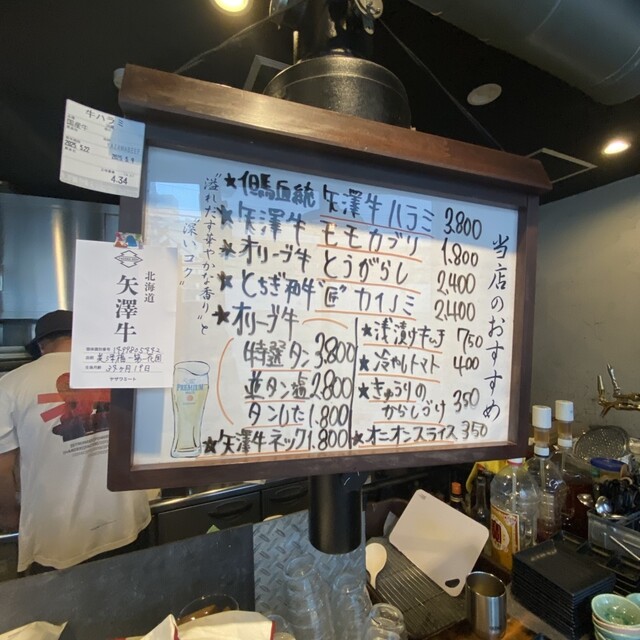 当店のおすすめ
★但馬血統 矢澤牛ハラミ 3.800
★矢澤牛 モモカブリ 1.800
★オリーブ牛 とうがらし 2,400
★とちぎ和牛"匠"カイノミ 2,400
★オリーブ牛
特選タン 3,800
並タン塩 2,800
タンした 1.800
★矢澤牛ネック 1.800
★浅漬けキムチ 750
★冷やしトマト 400
★きゅうりの
からしづけ 350
★オニオンスライス 350
"溢れだす華やかな香りと
深いコク"
PREMIUM
牛ハラミ
国産牛
2025.5.22
2025.6.9
4.34
北海道
矢澤牛
ヤザワミート